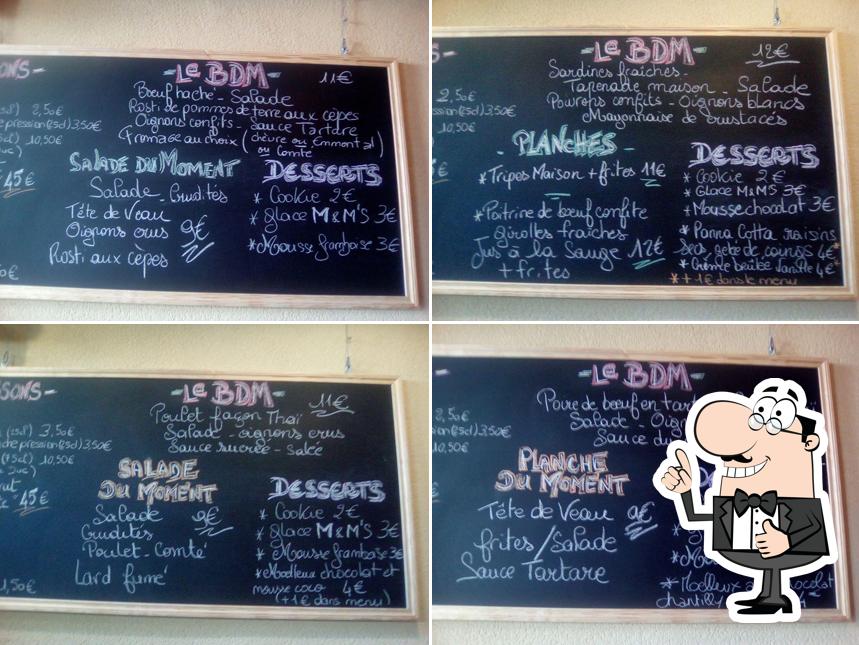 ONS-
-Le BDM-
11€
Bœuf haché - Salade
Rosti de pommes de terre aux cèpes
Oignons confits - Sauce Tartare
Fromage au choix (chèvre ou Emmental
ou Comté)
2,50€
pression (25cl) 3,50€
10,50€
45€
Salade du Moment
Salade - Crudités
Tête de Veau
Oignons crus 9€
Rosti aux cèpes
Desserts
* Cookie 2€
* glace M&M'S 3€
* Mousse framboise 3€
-Le BDM-
12€
Sardines fraîches -
Tapenade maison - Salade
Poivrons confits - Oignons blancs
Mayonnaise de crustacés
2,50€
ression (25cl) 3,50€
10,50€
- Planches -
* Tripes Maison + frites 11€
* Poitrine de bœuf confite
girolles fraîches
Jus à la Sauge 12€
+ frites
Desserts
* Cookie 2€
* Glace M&M'S 3€
* Mousse chocolat 3€
* Panna Cotta raisins
secs gelée de coings 4€*
* Crème brûlée Vanille 4€*
* +1€ dans le menu
SSONS-
-Le BDM-
11€
Poulet façon Thaï
Salade - oignons crus
Sauce sucrée - salée
(25cl) 3,50€
dre pression (25cl) 3,50€
(75cl) 10,50€
45€
1,50€
Salade
du Moment
Salade 9€
Crudités
Poulet - Comté
Lard fumé
Desserts
* Cookie 2€
* glace M&M'S 3€
* Mousse framboise 3€
* Moelleux chocolat et
mousse coco 4€
(+1€ dans menu)
-Le BDM-
de bœuf en
Salade -
Sauce
2,50€
pression (25cl) 3,50€
10,50€
Planche
du Moment
Tête de Veau 9€
frites / Salade
Sauce Tartare
* Moelleux chocolat
chantilly